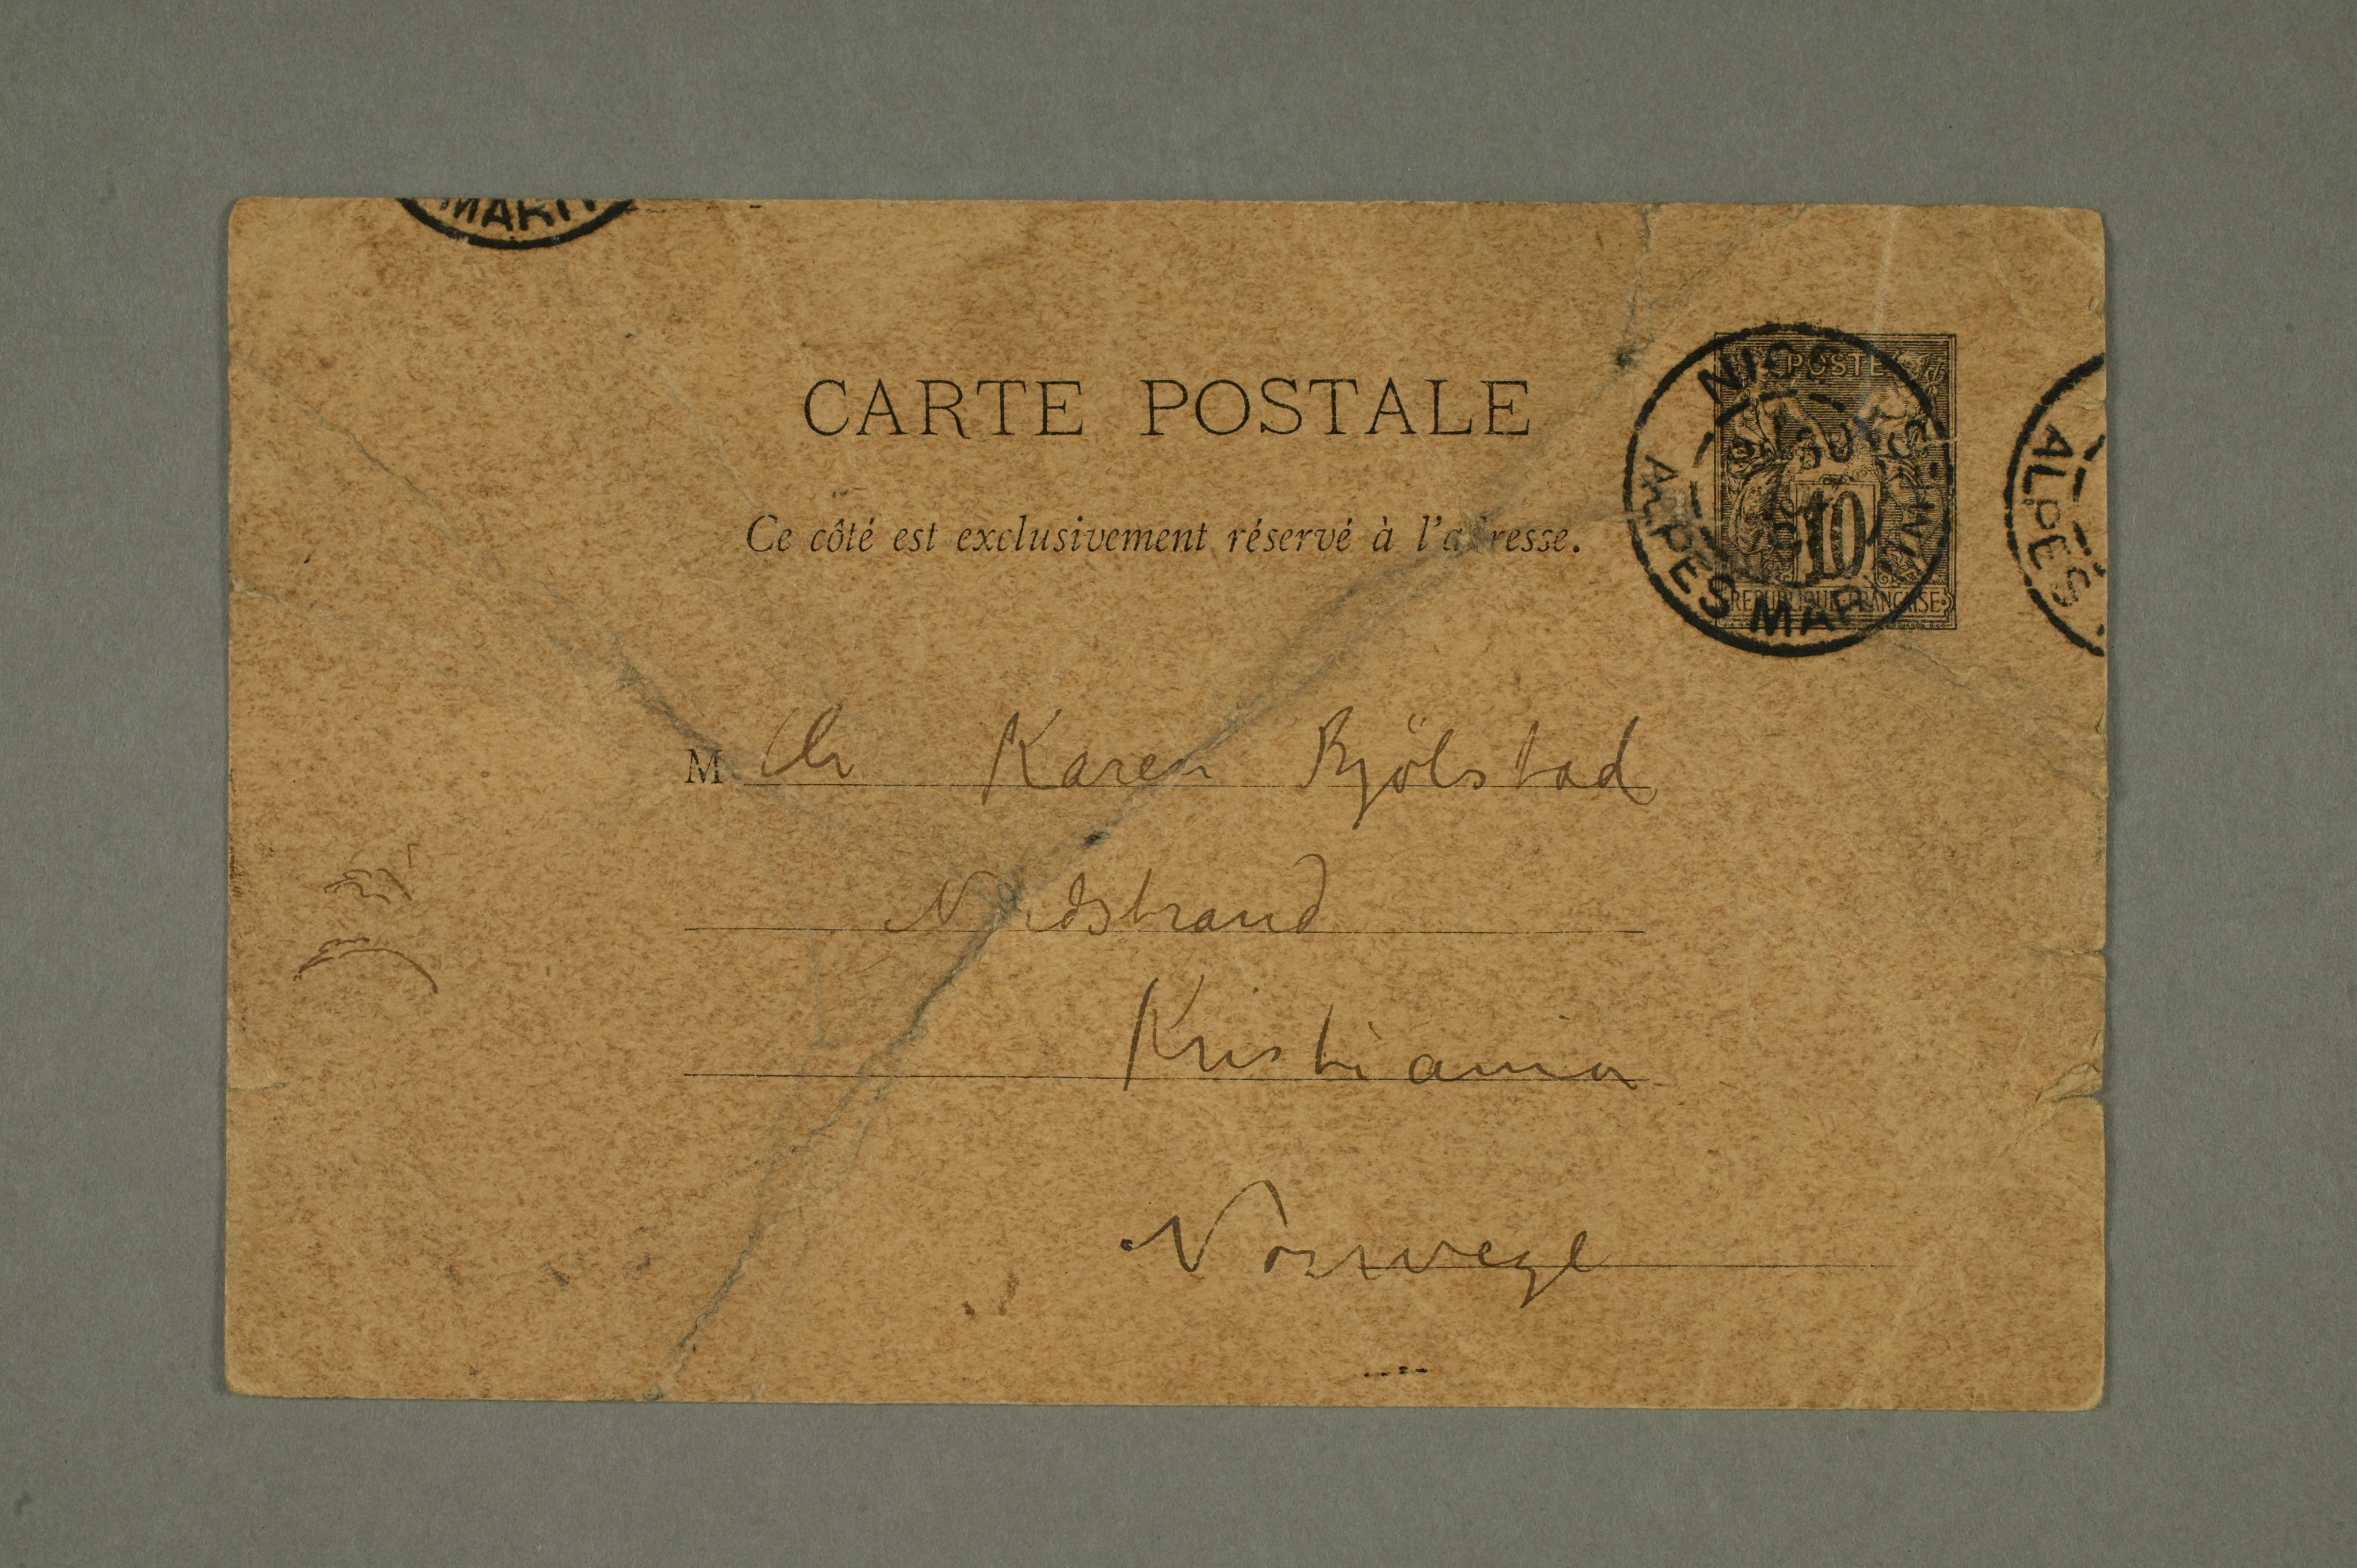 MARIT
CARTE POSTALE
POSTE
NICE
Ce côté est exclusivement réservé à l'adresse.
10
REPUBLIQUE FRANÇAISE
ALPES MARIT
ALPES
Mlle Karen Bjölstad
Nordstrand
Kristiania
Norwege